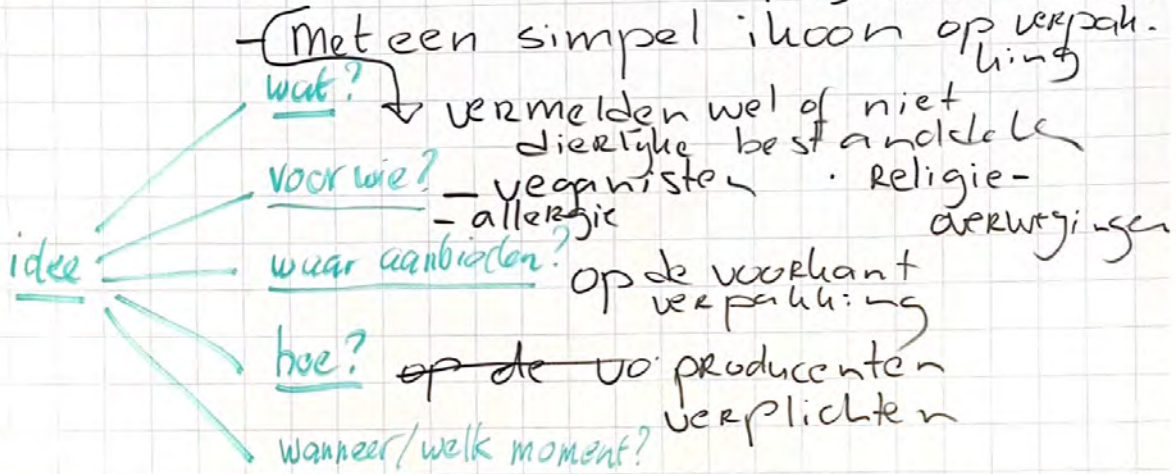 - Met een simpel ikoon op verpak-
king
wat?
vermelden wel of niet
dierlijke bestanddelen
voor wie? - veganisten · Religie-
- allergie overwegingen
idee
waar aanbieden? op de voorkant
verpakking
hoe? op de vo producenten
verplichten
wanneer/welk moment?